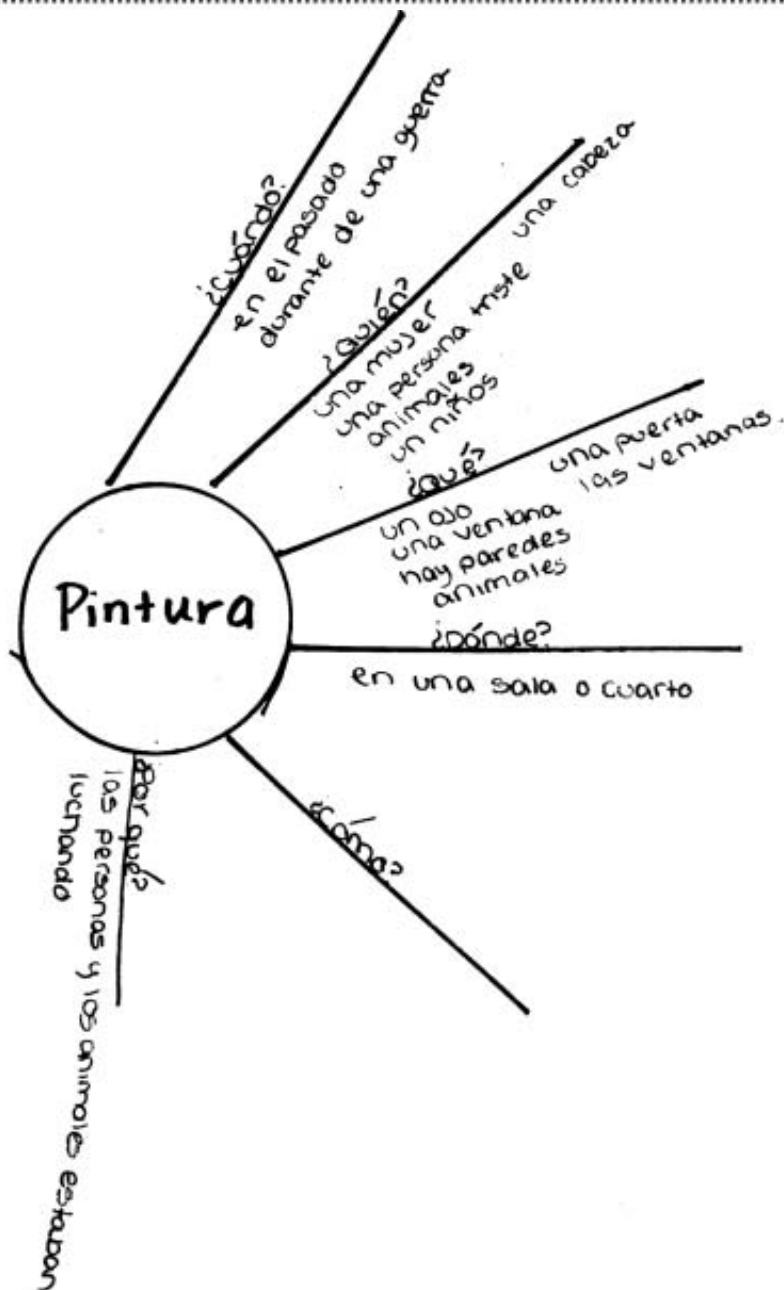 Pintura
¿Cuándo?
en el pasado
durante de una guerra
¿Quién?
una mujer
una persona triste
animales
un niños
una cabeza
¿Qué?
un ojo
una ventana
hay paredes
animales
una puerta
las ventanas.
¿Dónde?
en una sala o cuarto
¿Cómo?
¿Por qué?
las personas y los animales estaban
luchando